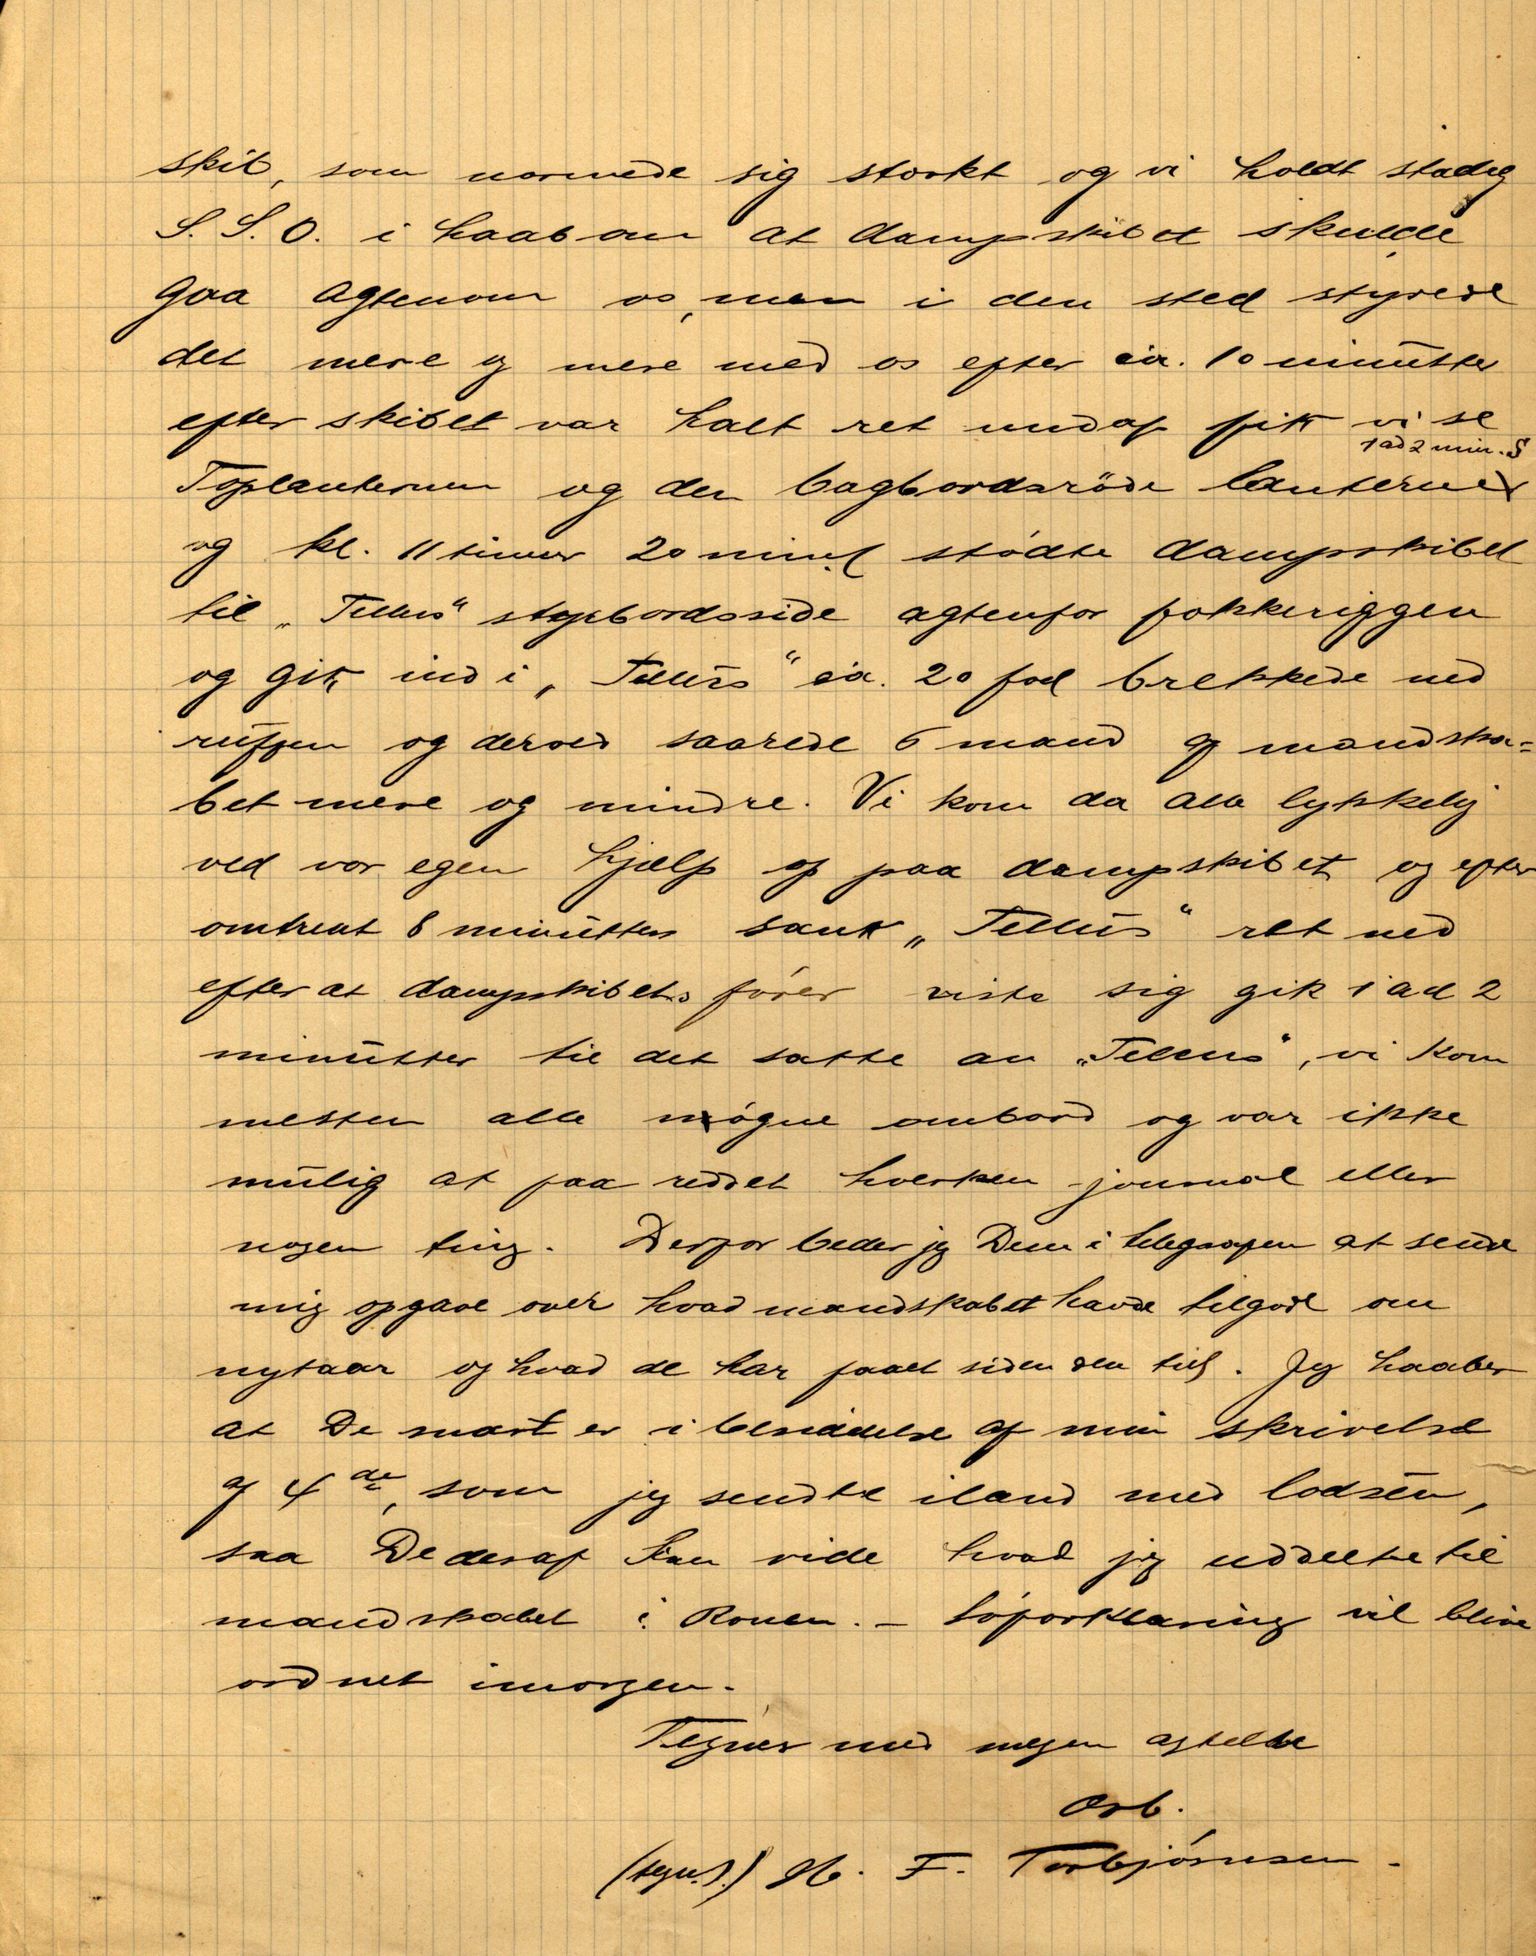 skib, som nærmede sig stærkt og vi holdt stadig
S.S.O. i haab om at dampskibet skulde
gaa agtenom os, men i den sted styrede
det mere og mere ned os efter ca. 10 minutter
efter skibet var halt ret undaf fik vi se
1 ad 2 min. S
Toplanternen og den bagbordsrøde lanterne
og kl. 11 timer 20 min. stødte dampskibet
til „Tellus“ styrbordsside agtenfor fokkeriggen
og gik ind i „Tellus“ ca. 20 fod brekkede ned
ruffen og derved saarede 6 mand af mandska=
bet mere og mindre. Vi kom da alle lykkelig
ved vor egen hjælp op paa dampskibet og efter
omtrent 8 minutter sank „Tellus“ ret ned
efter at dampskibets fører viste sig gik 1 ad 2
minutter til det satte an „Tellus“, vi kom
mesten alle nøgne ombord og var ikke
mulig at faa reddet hverken journal eller
nogen ting. Derfor beder jeg Dem i telegrafen at sende
mig opgave over hvad mandskabet havde tilgode om
nytaar og hvad de har faaet siden den tid. Jeg haaber
at De snart er i besiddelse af min skrivelse
af 4de, som jeg sendte iland med lodsen,
saa De deraf kan vide hvad jeg uddelte til
mandskabet i Rouen. – Søforklaring vil blive
ordnet imorgen.
Tegner med megen agtelse
Ærb.
(tegn.) H. F. Torbjørnsen.